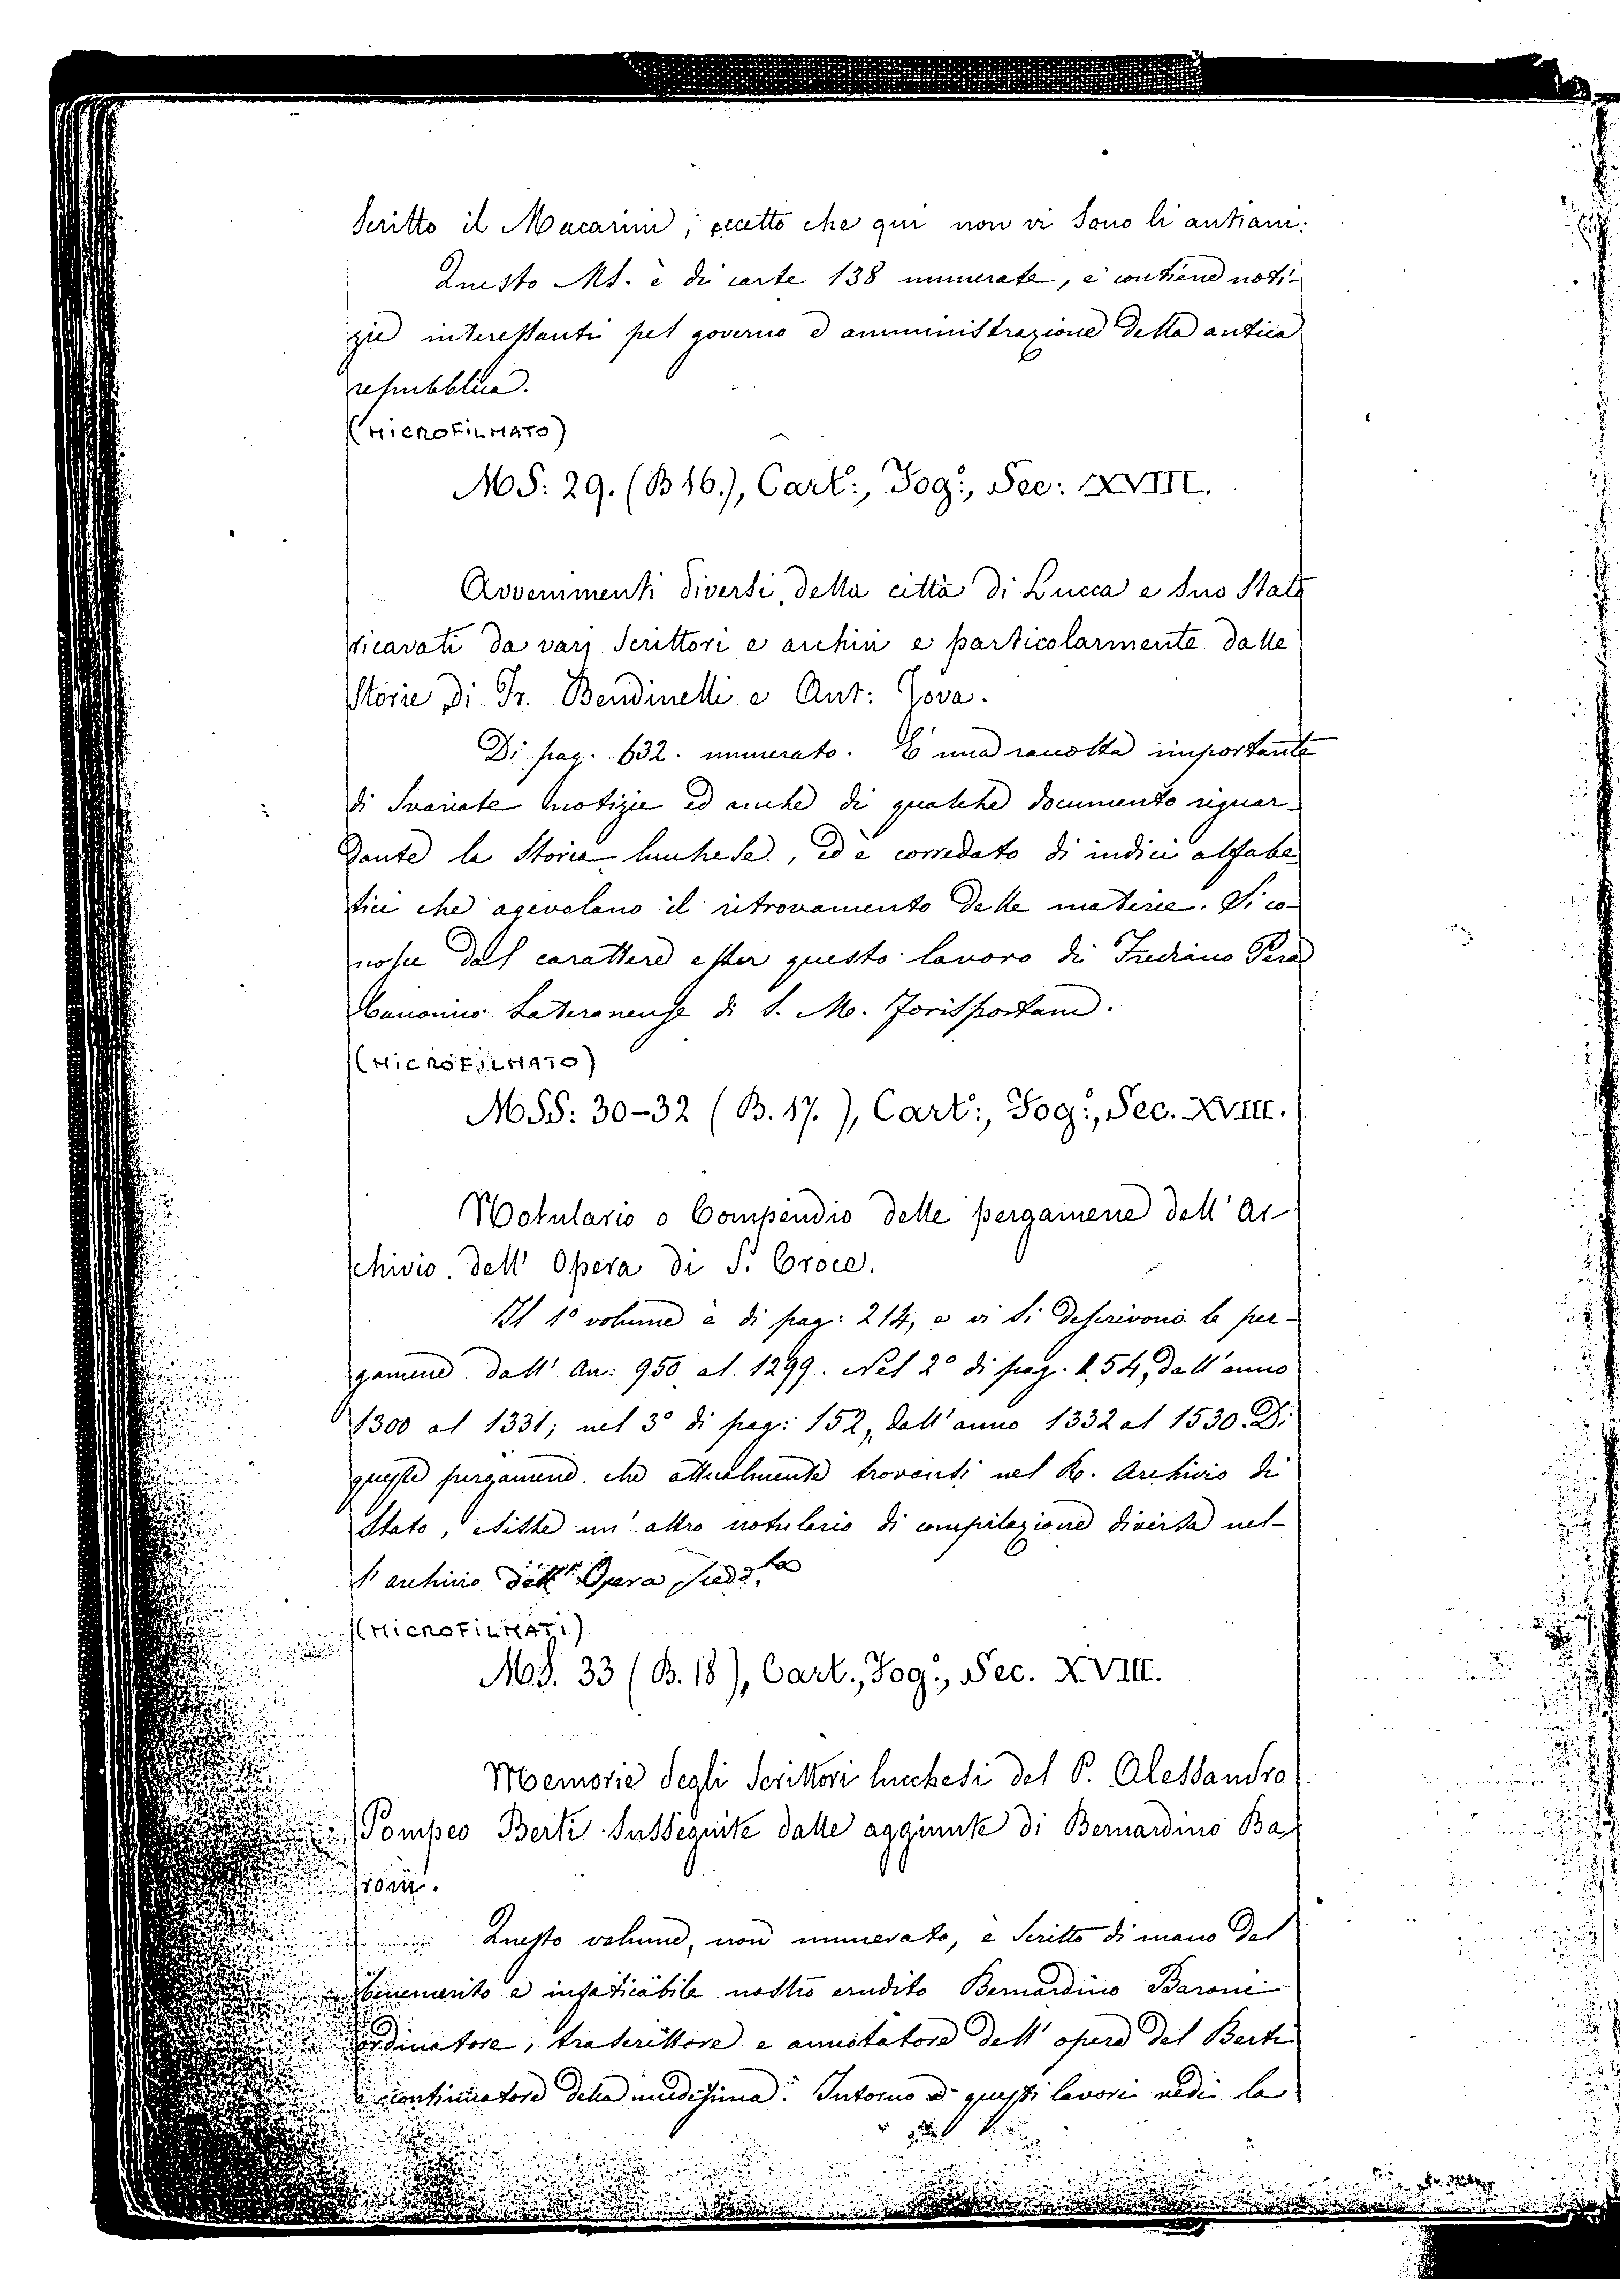 scritto il Macarini, eccetto che qui non vi sono li antiani.
Questo Ms. è di carte 138 numerate, e contiene noti-
zie interessanti pel governo e amministrazione della antica
repubblica.
(MICROFILMATO)
MS: 29. (B 16.), Cart:, Fog:, Sec: XVIII.
Avvenimenti diversi della città di Lucca e suo Stato
ricavati da varj scrittori e archivi e particolarmente dalle
storie di Fr. Bendinelli e Ant: Jova.
Di pag. 632. numerato. È una raccolta importante
di svariate notizie ed anche di qualche documento riguar-
dante la storia lucchese, ed è corredato di indici alfabe
tici che agevolano il ritrovamento delle materie. Si co-
nosce dal carattere esser questo lavoro di Frediano Pera
Canonico Lateranense di S. M. Forisportam.
(MICROFILMATO)
MSS: 30-32 (B. 17.), Cart:, Fog:, Sec. XVIII.
Notulario o Compendio delle pergamene dell' Ar-
chivio dell' Opera di S. Croce.
Il 1º volume è di pag: 214, e vi si descrivono le per-
gamene dall' An: 950 al 1299. Nel 2º di pag. 254, dall'anno
1300 al 1331; nel 3º di pag: 152, dall'anno 1332 al 1530. Di
queste pergamene che attualmente trovansi nel R. Archivio di
Stato, esiste un' altro notulario di compilazione diversa nel-
l' archivio dell' Opera sudd.ta
(MICROFILMATI)
MS. 33 (B. 18), Cart., Fog:, Sec. XVIII.
Memorie degli scrittori lucchesi del P. Alessandro
Pompeo Berti susseguite dalle aggiunte di Bernardino Ba
roni.
Questo volume, non numerato, è scritto di mano del
benemerito e infaticabile nostro erudito Bernardino Baroni
ordinatore, trascrittore e annotatore dell' opera del Berti
e continuatore della medesima. Intorno a questi lavori vedi la